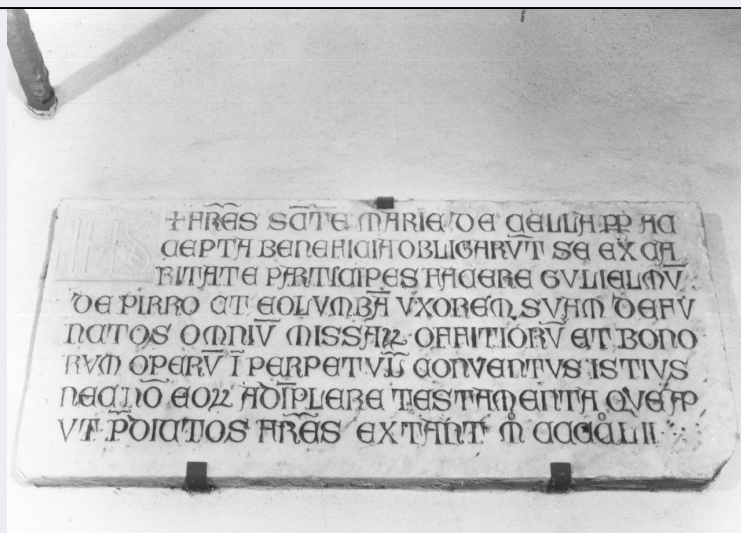 IHS
+ FR̃ES SC̃TE MARIE DE CELLA PP AC
CEPTA BENEFICIA OBLIGARVT̄ SE EX CA
RITATE PARTICIPES FACERE GVLIELMV̄
DE PIRRO ET COLVMBĀ VXOREM SVAM DEFV
NCTOS OMNIV̄ MISSAꝝ OFFITIORV̄ ET BONO
RVM OPERV̄ Ī PERPETVV̄ CONVENTVS ISTIVS
NECNŌ EOꝝ ADĪPLERE TESTAMENTA QVE AP
VT P̄DICTOS FR̃ES EXTANT M̊ CCCC̊LII